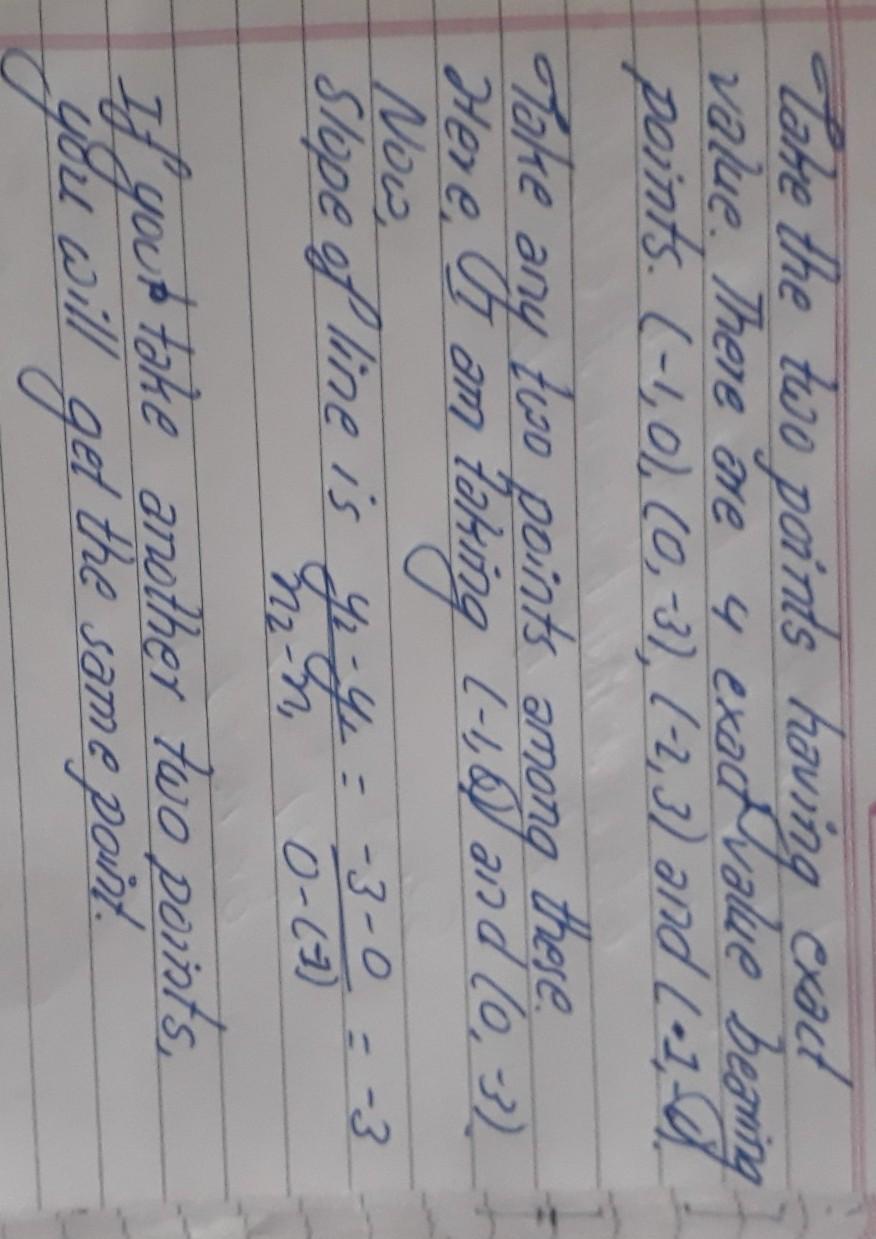 Take the two points having exact
value. There are 4 exact value bearing
points. (-1,0), (0,-3), (-2,3) and (1,-6).
Take any two points among these.
Here, I am taking (-1,0) and (0,-3).
Now,
Slope of line is y2-y1/x2-x1 = -3-0/0-(-1) = -3
If you take another two points,
you will get the same point.